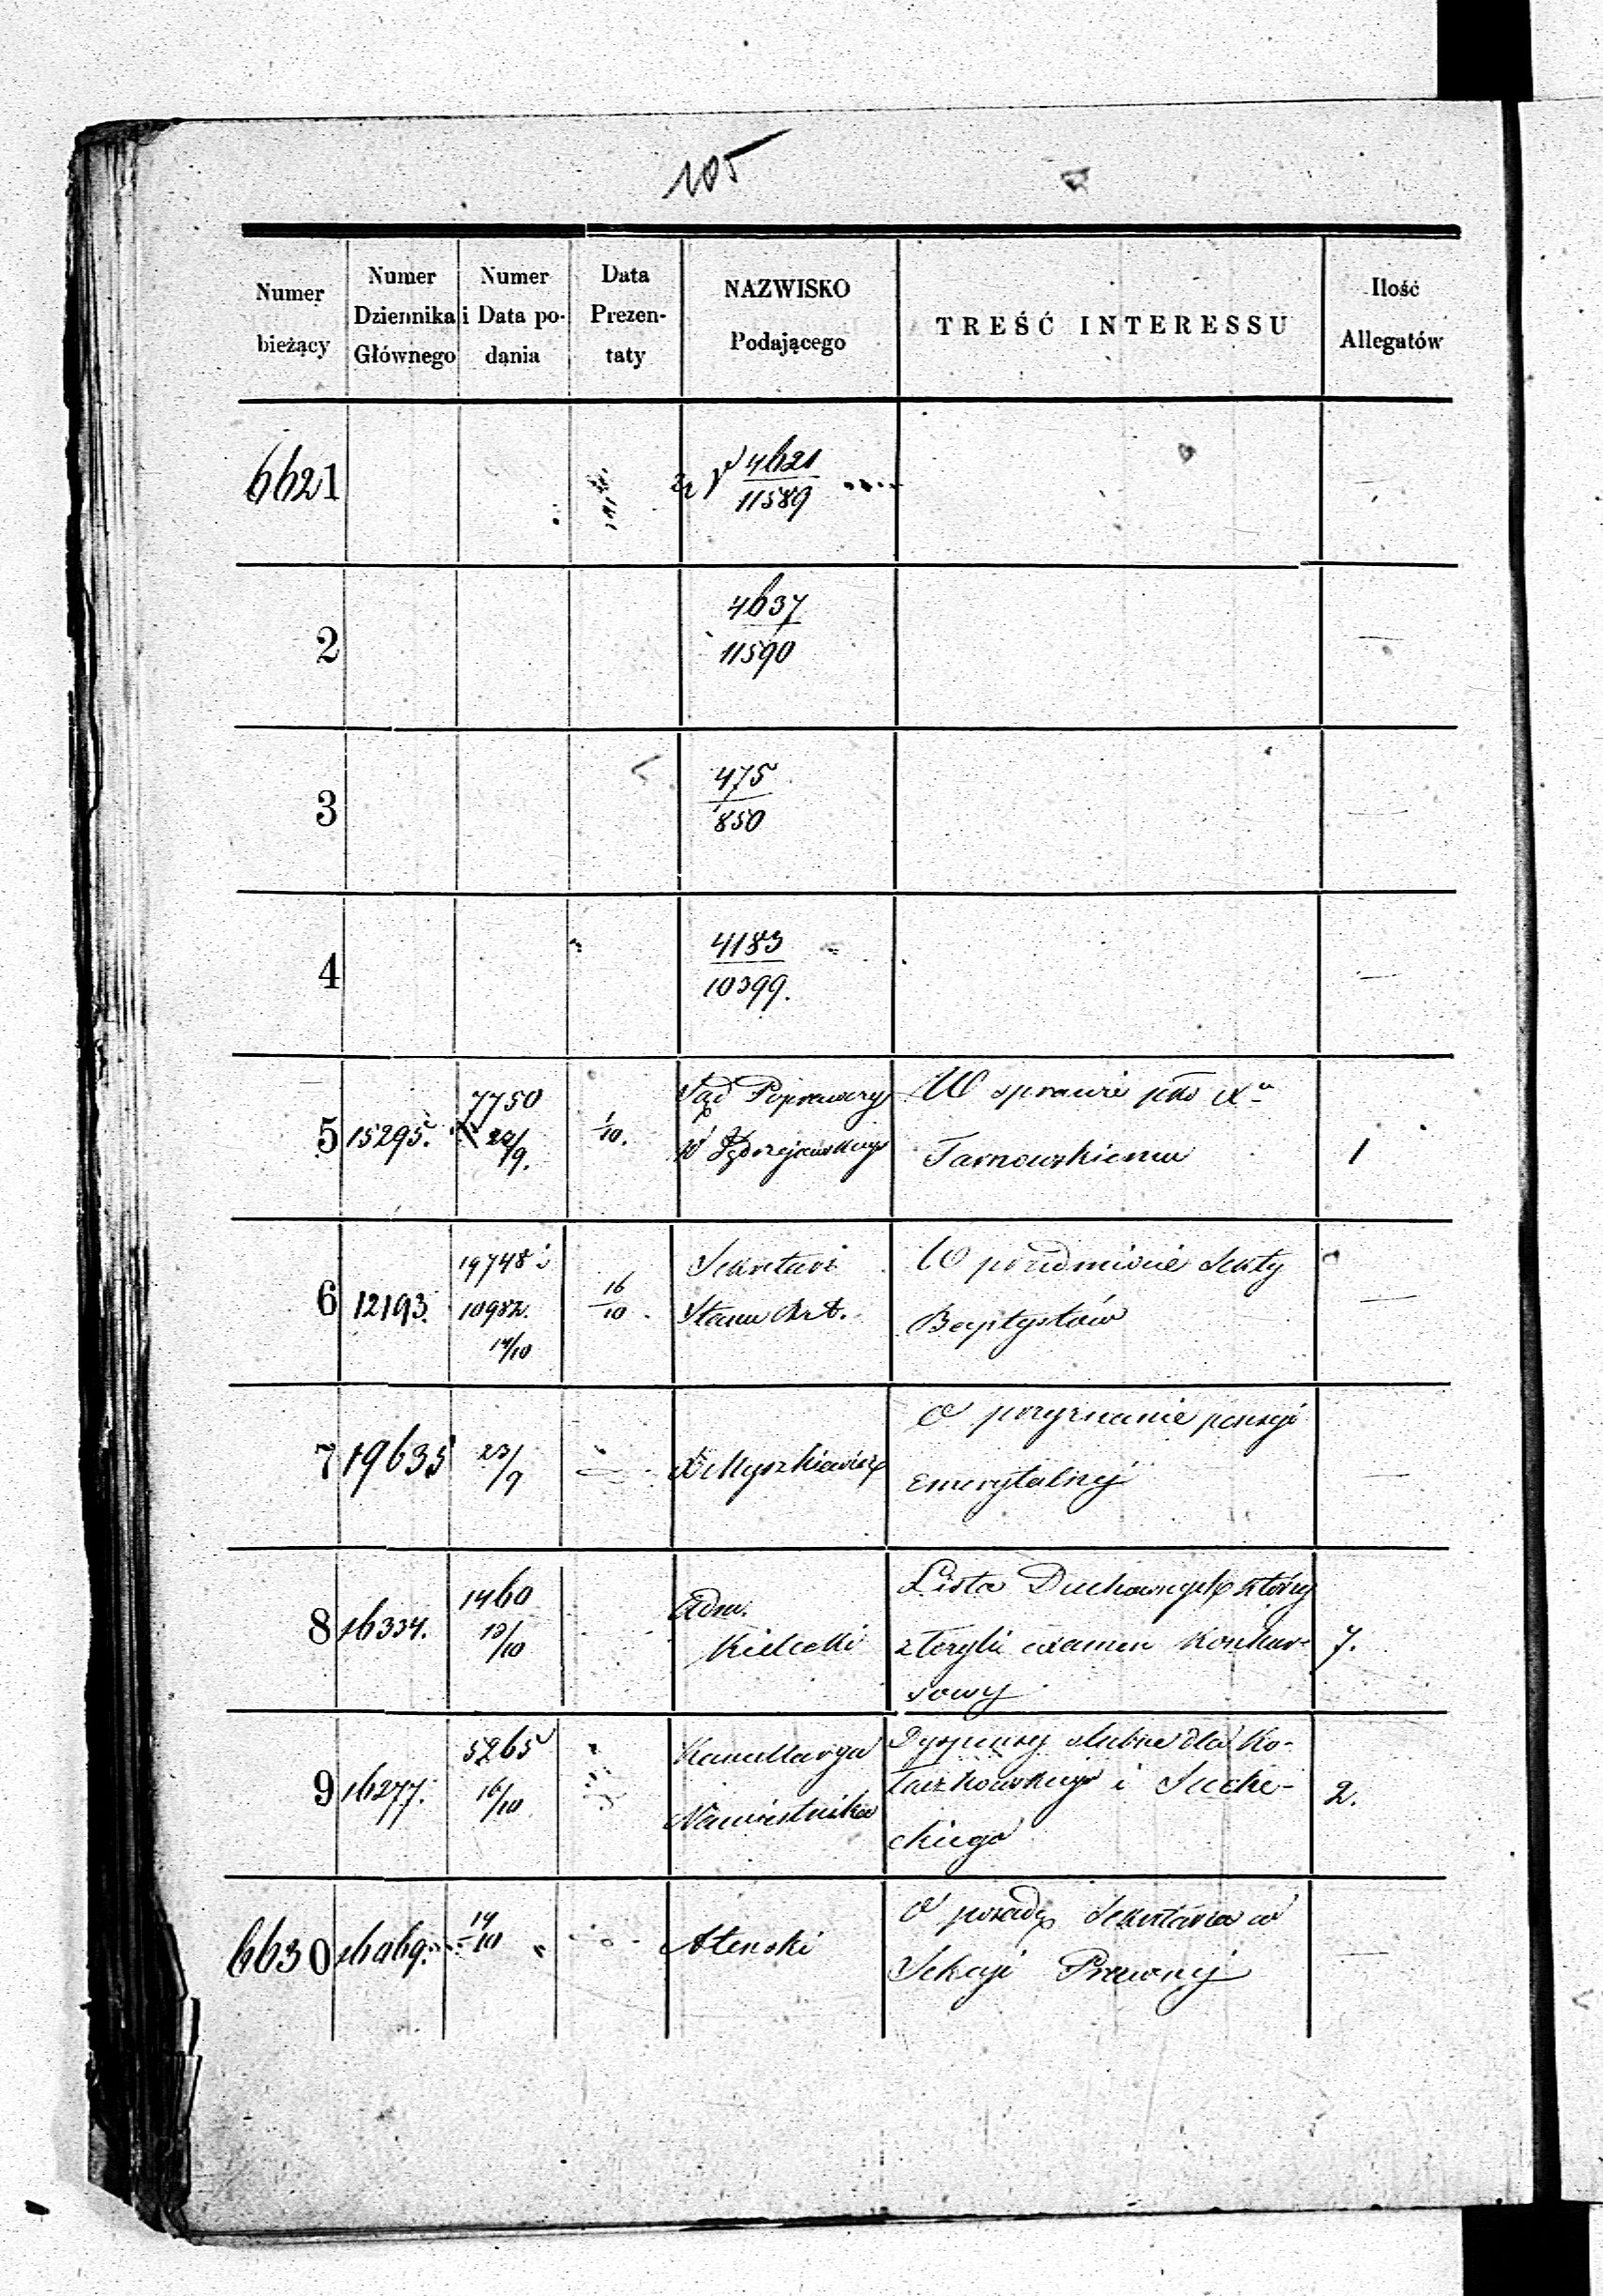 105
Numer bieżący | Numer Dziennika Głównego | Numer i Data podania | Data Prezentaty | NAZWISKO Podającego | TREŚĆ INTERESSU | Ilość Allegatów
6621 | | | | 4621
11589
2 | | | | 4637
11590
3 | | | | 475
850
4 | | | | 4183
10399.
5 | 15295. | 7750 | 1/10. | Sąd Poprawczy | W sprawie pko Xu | 1
/9. | w | Tarnowskiemu
6 | 12193. | 19748 i | 16/10. | Sekretarz | W przedmiocie Sekty | —
10982. | Stanu | Baptystów
14/10
7 | 19635 | 23/9 | — | X Myszkiewicz | O przyznanie pensyi | —
emerytalnej
8 | 16334. | 1460 | | Adm. | Lista Duchownych którzy | 7.
13/10 | Kielecki | złożyli examen konkur-
sowy
9 | 16277. | 5265 | | Kancellarya | Dyspensy ślubne dla Ko-
16/10 | Namiestnika | łaczkowskiego i Suche- | 2.
ckiego
6630 | | 14/10 | | | O posadę Sekretarza w | —
Sekcyi Prawnej